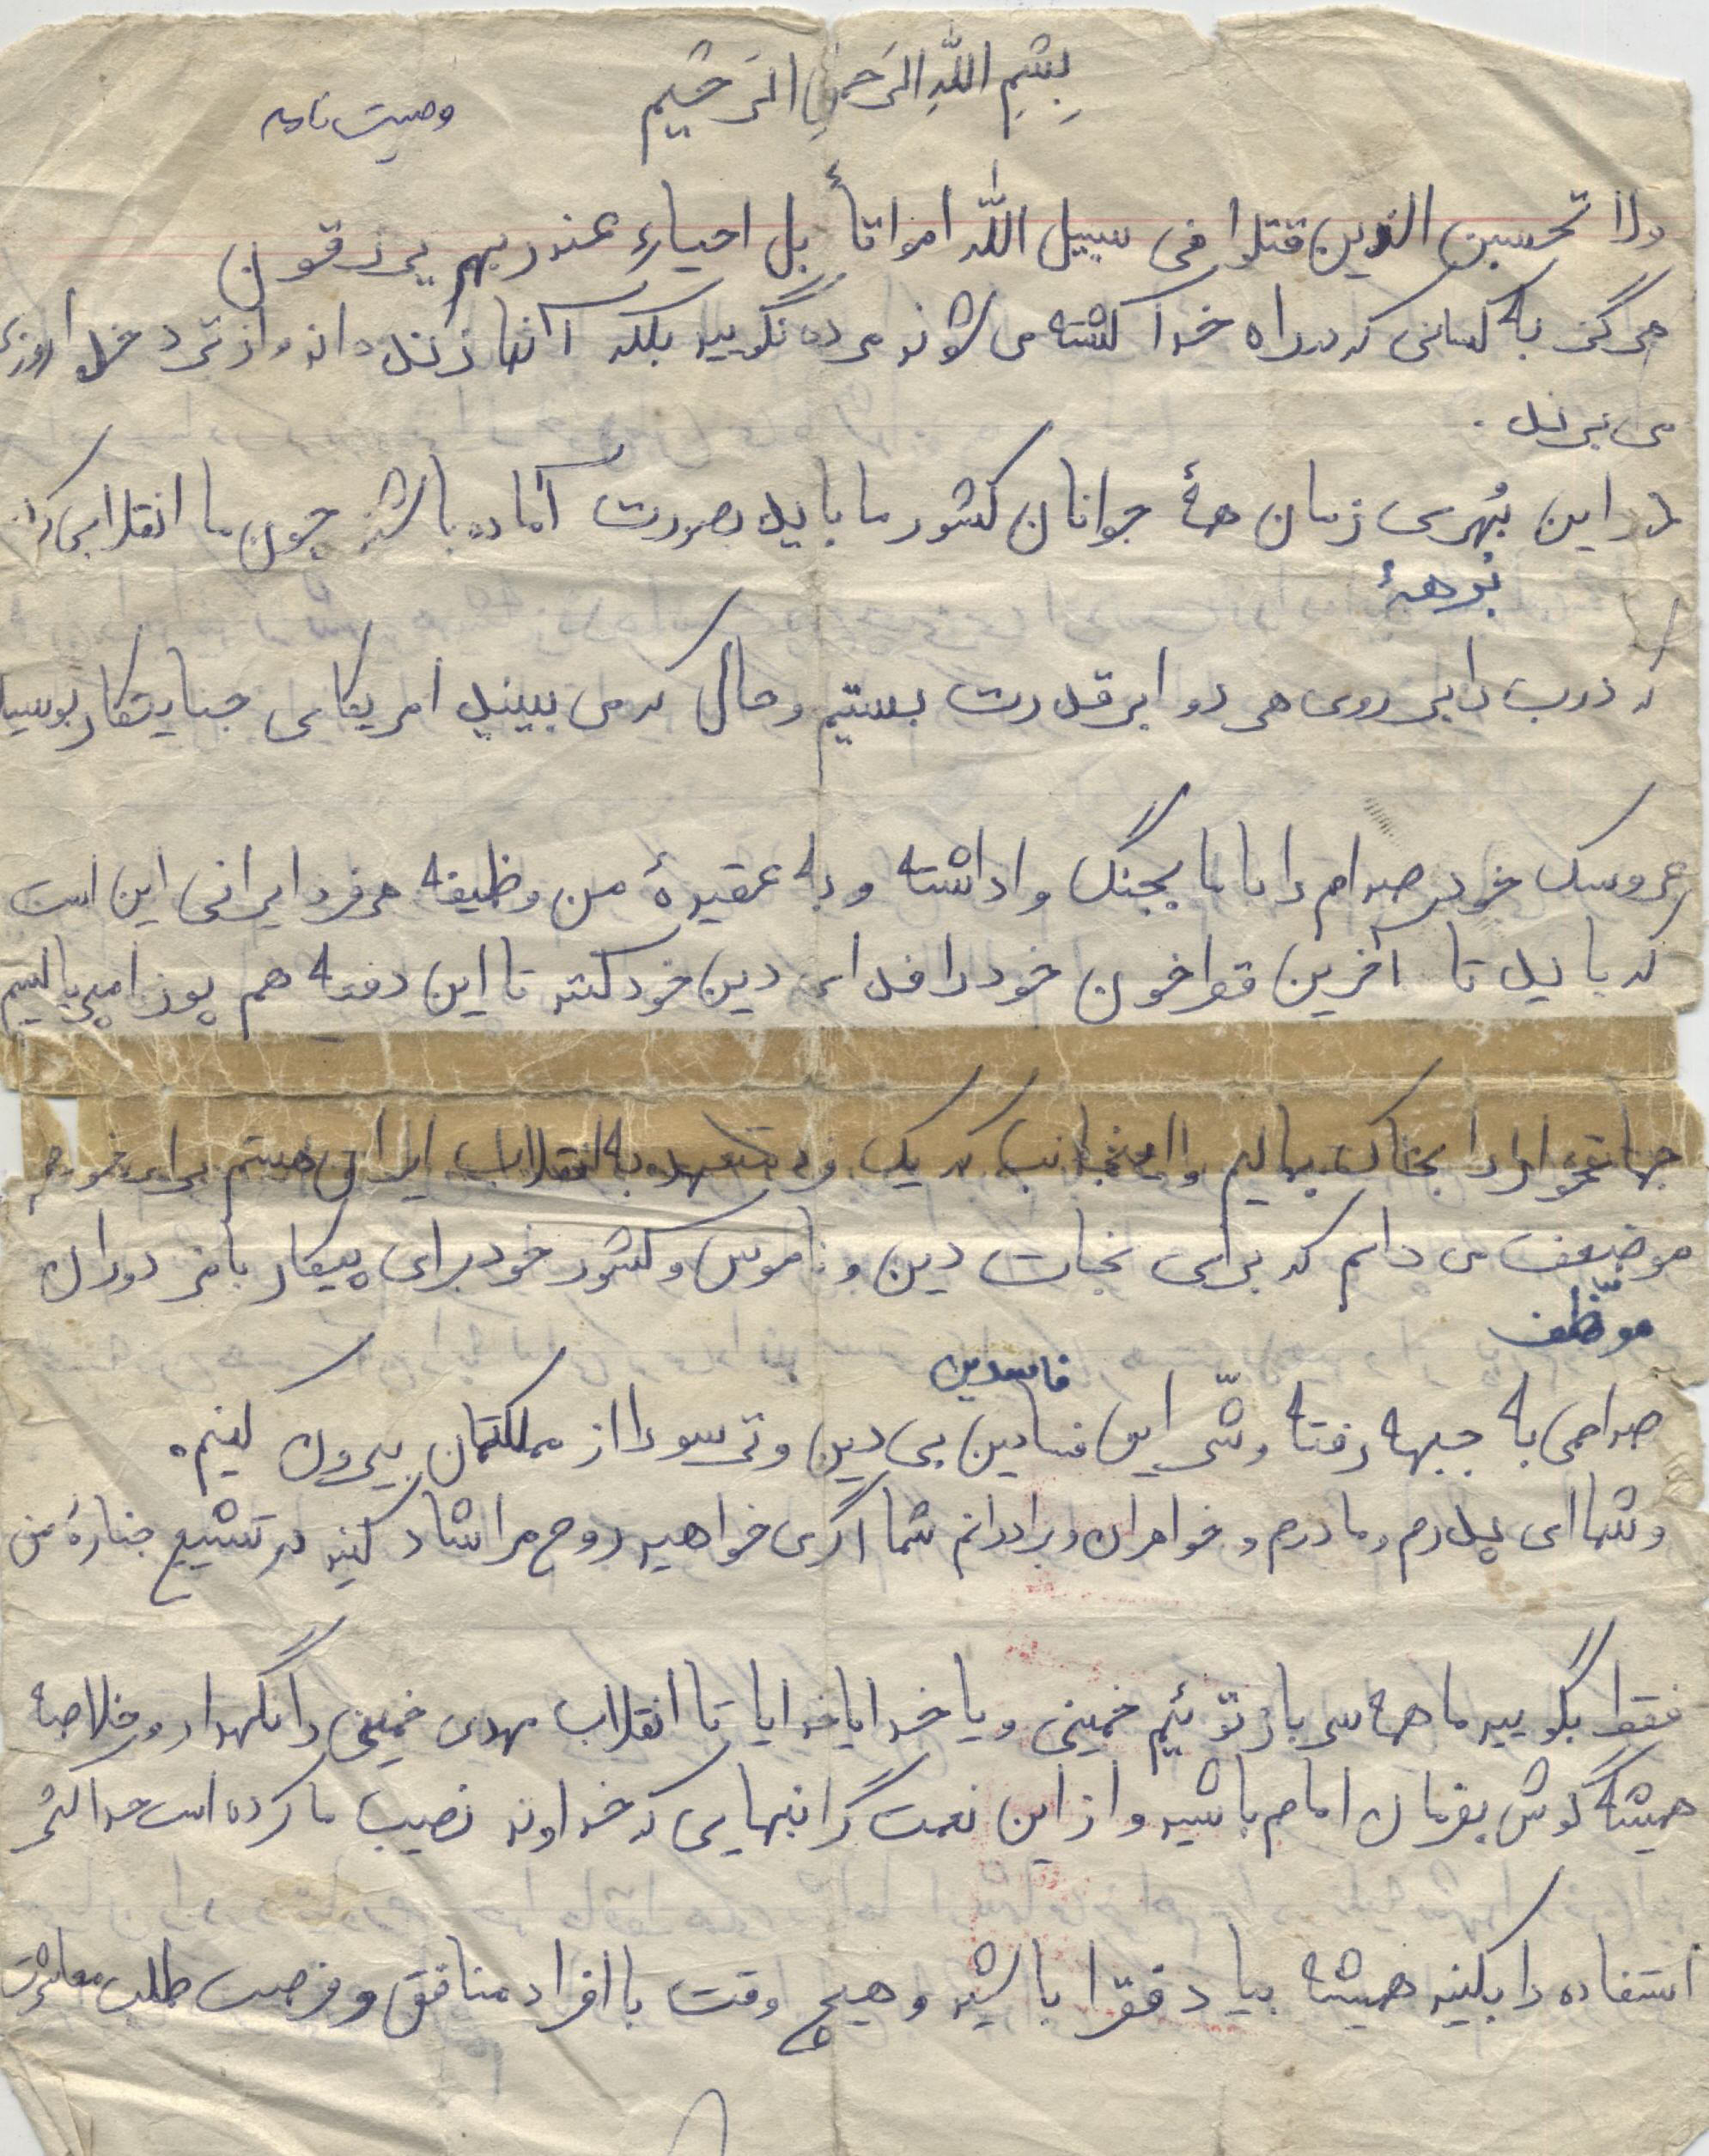 بِسْمِ اللّهِ الرَحمنِ الرَحیم
وصیت نامه
ولا تحسبن الذین قتلوا فی سبیل اللّه امواتاً بل احیاء عند ربهم یرزقون
هرگز به کسانی که در راه خدا کشته می شوند مرده نگویید بلکه آنها زنده اند و از نزد خدا روزی
می برند .
در این بُهری زمان همهٔ جوانان کشور ما باید بصورت آماده باشند چون ما انقلابی کرد
بُرههٔ
که درب را بر روی هر دو ابر قدرت بستیم و حال که می بینید امریکای جنایتکار بوسیله
عروسک خود صدام را با ما بجنگ واداشته و به عقیدهٔ من وظیفه هر فرد ایرانی این است
که باید تا آخرین قطر خون خود را فدای دین خود کنند تا این دفعه هم پوز امپریالیسم
جهانخوار را بخاک بمالیم و اینجانب که یک فرد متعهد به انقلاب ایران هستم برای خودم
موضعف می دانم که برای نجات دین و ناموس و کشور خود برای پیکار با نمرد دوران
موظّف
صدامی به جبهه رفته و شّر این فسادین بی دین و ترسو را از مملکتمان بیرون کنیم.
فاسدین
و شما ای پدرم و مادرم و خواهران و برادرانم شما اگر می خواهید روح مرا شاد کنید در تشییع جنازهٔ من
فقط بگویید ما همه سرباز توئیم خمینی و یا خدایا خدایا تا انقلاب مهدی خمینی را نگهدار و خلاصهٔ
همیشه گوش بفرمان امام باشید و از این نعمت گرانبهایی که خداوند نصیب ما کرده است حداکثر
استفاده را بکنید همیشه بیاد فقرا باشید و هیچ وقت با افراد منافق و فرصت طلب معاشرت